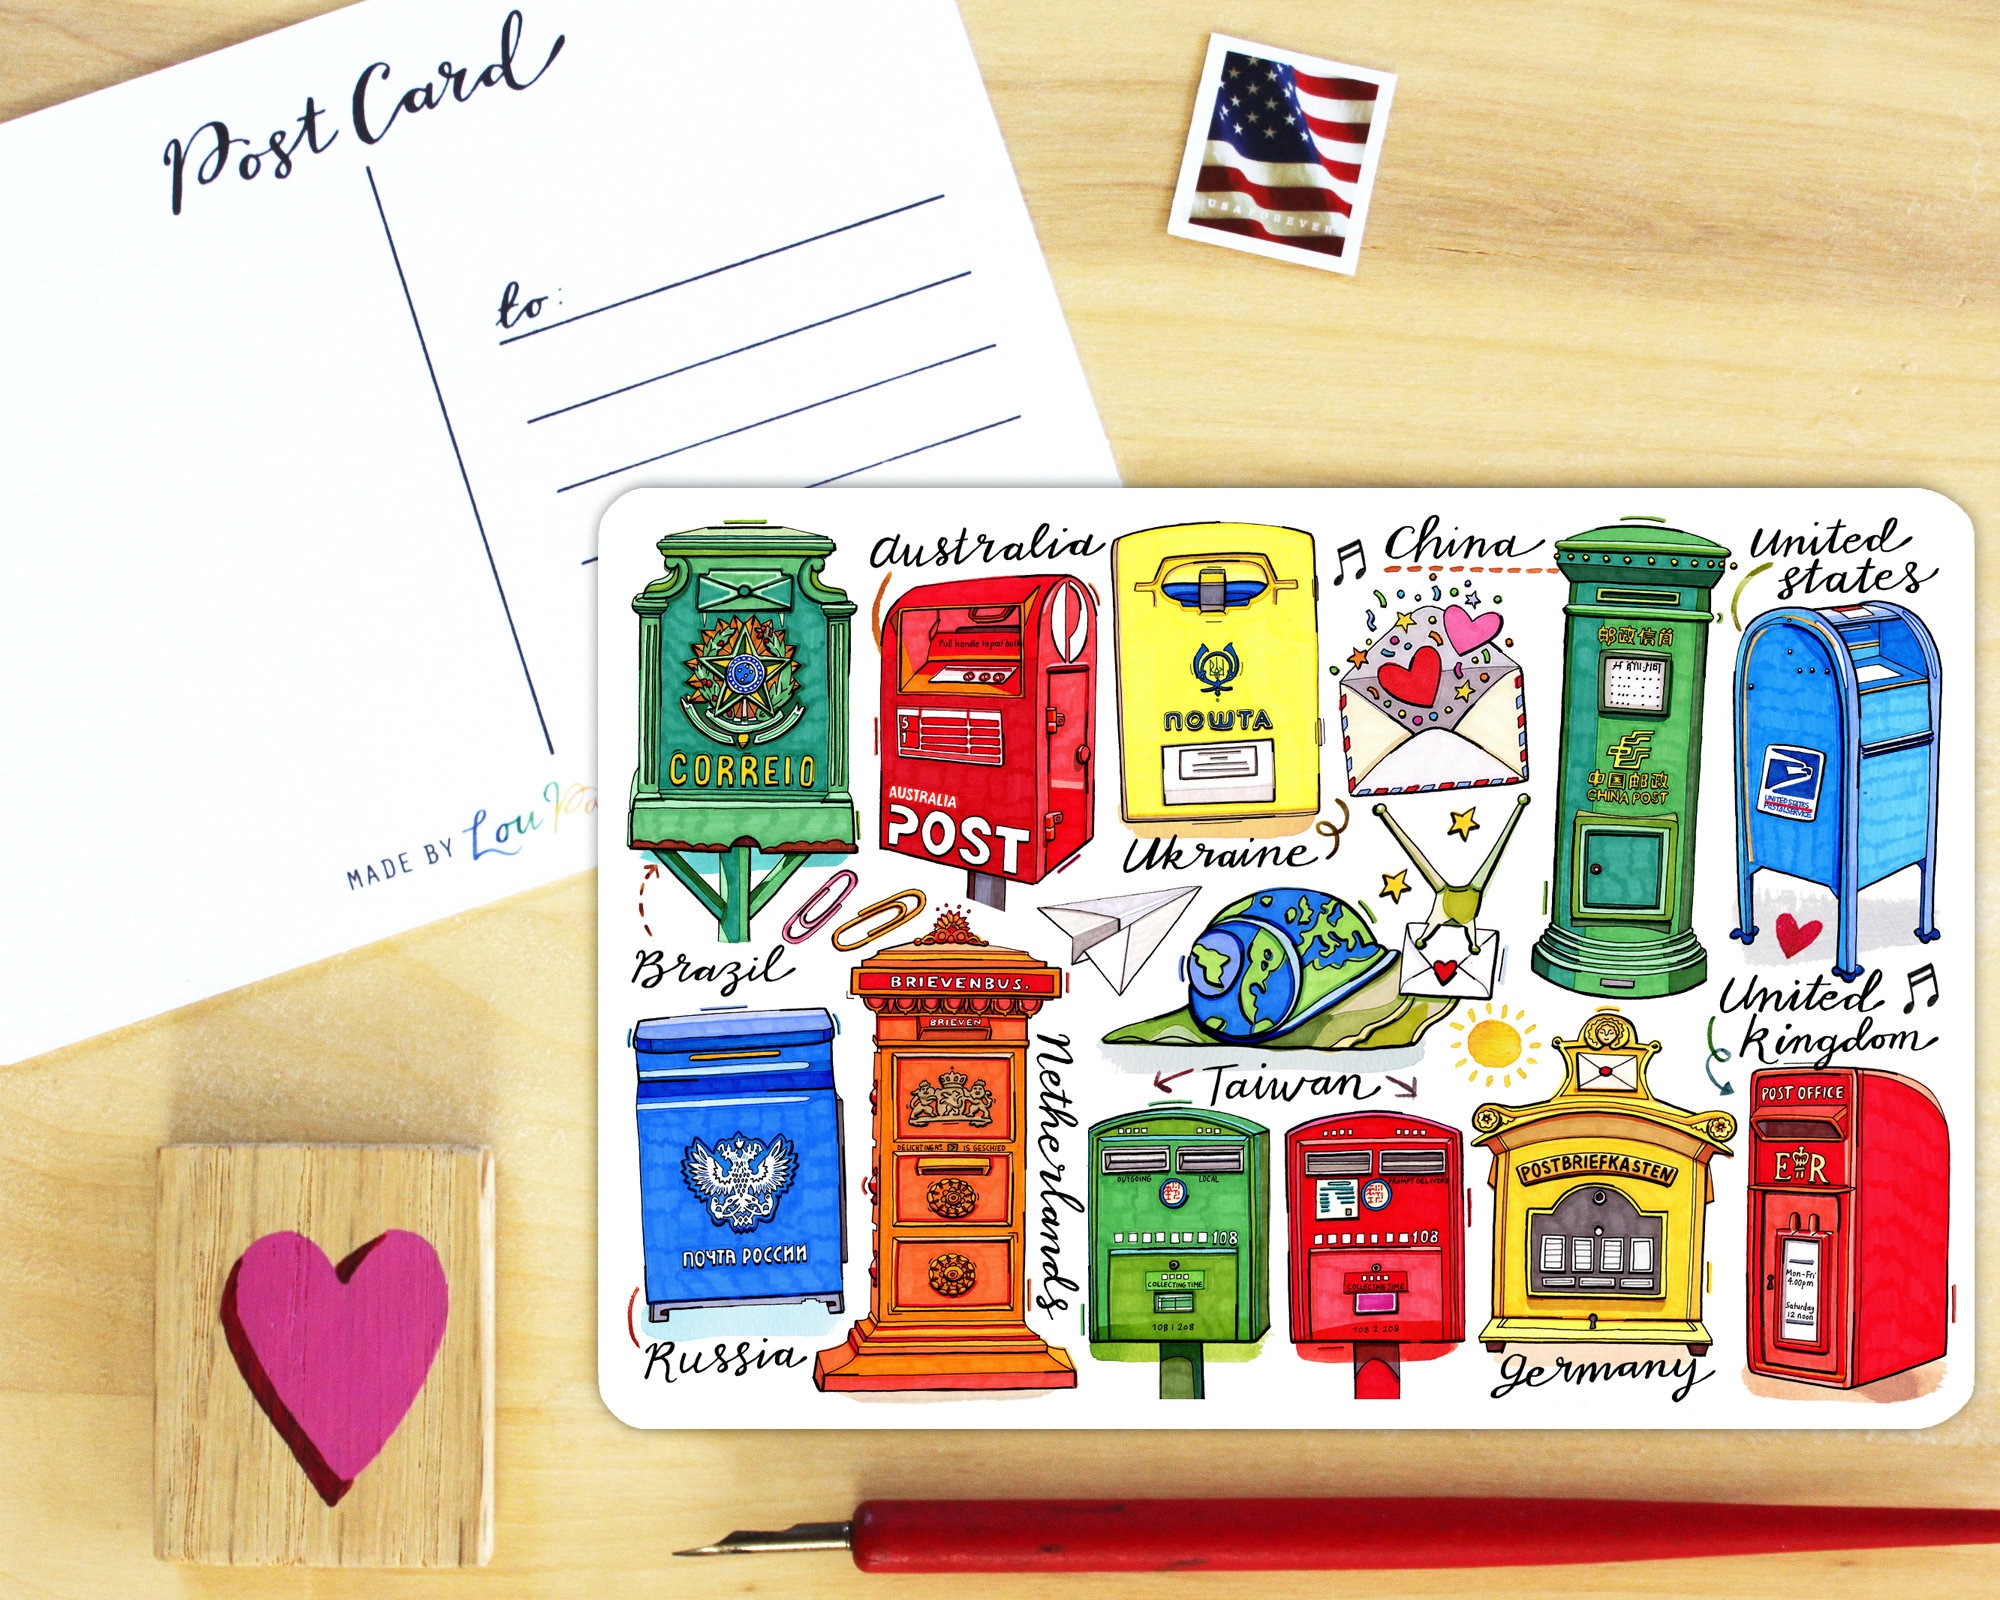 Post Card
to:
MADE BY Lou
USA FOREVER
CORREIO
Brazil
Australia
Pull handle to post bulk
5
1
AUSTRALIA
POST
ПОШТА
Ukraine
China
邮政信筒
中国邮政
CHINA POST
United
States
UNITED STATES
POSTAL SERVICE
ПОЧТА РОССИИ
Russia
BRIEVENBUS.
BRIEVEN
IS GESCHIED
Netherlands
Taiwan
OUTGOING
LOCAL
108
COLLECTING TIME
108 1 208
PROMPT DELIVERY
108
COLLECTING TIME
108 2 208
POSTBRIEFKASTEN
Germany
United
Kingdom
POST OFFICE
E R
Mon-Fri
4.00pm
Saturday
12 noon